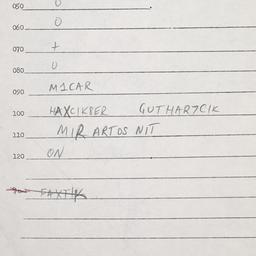 050 0
060 0
070 +
080 U
090 M1CAR
100 HAXCIKPER GUTHAR7CIK
110 MIR ARTOS NIT
120 ON
FAXTIK